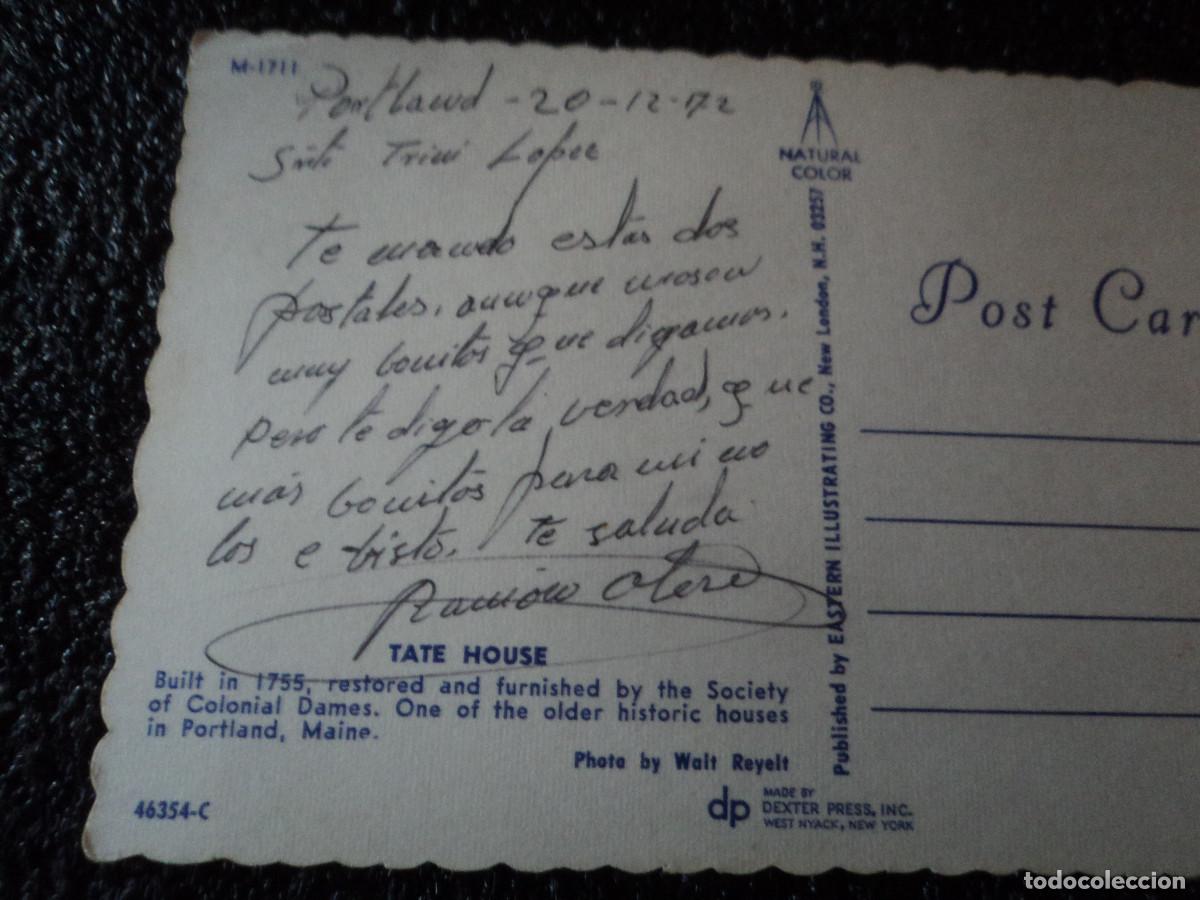 M-1711
Portland - 20-12-72
Srta Trini Lopez
te mando estas dos
postales. aunque no son
muy bonitos que digamos.
pero te digo la verdad, que
más bonitos para mi no
los e bisto. te saluda
Ramón Otero
TATE HOUSE
Built in 1755, restored and furnished by the Society
of Colonial Dames. One of the older historic houses
in Portland, Maine.
Photo by Walt Reyelt
46354-C
dp MADE BY
DEXTER PRESS, INC.
WEST NYACK, NEW YORK
NATURAL
COLOR
Published by EASTERN ILLUSTRATING CO., New London, N.H. 03257
Post Car
todocoleccion